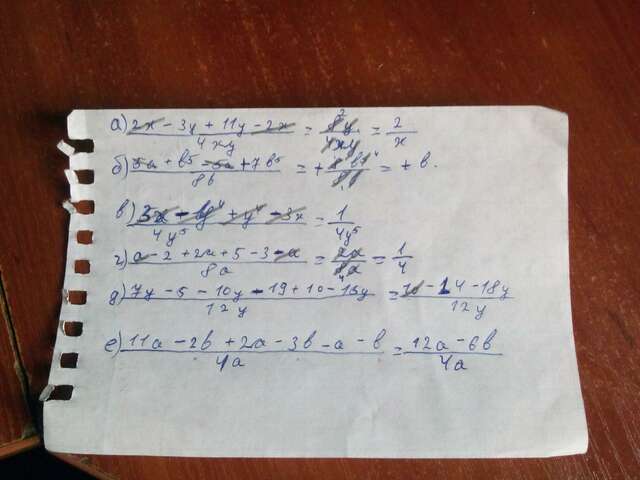 а) (2x - 3y + 11y - 2x)/(4xy) = 8y/4xy = 2/x
б) (5a + b⁵ - 5a + 7b⁵)/(8b) = + 8b⁵/8b = + b⁴
в) (3x - y⁴ + y⁴ - 3x)/(4y⁵) = 1/(4y⁵)
г) (a - 2 + 2a + 5 - 3 - a)/(8a) = 2a/8a = 1/4
д) (7y - 5 - 10y - 19 + 10 - 15y)/(12y) = (-14 - 18y)/(12y)
е) (11a - 2b + 2a - 3b - a - b)/(4a) = (12a - 6b)/(4a)